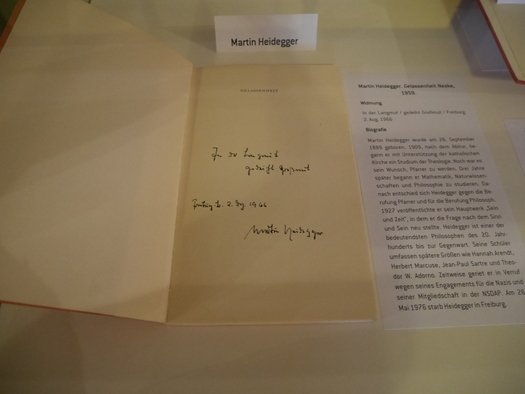 Martin Heidegger
GELASSENHEIT
In der Langmut
gedeiht Großmut
Freiburg i. B. 2. Aug. 1966
Martin Heidegger
Martin Heidegger, Gelassenheit Neske,
1959.
Widmung
In der Langmut / gedeiht Großmut / Freiburg
2. Aug. 1966
Biografie
Martin Heidegger wurde am 26. September
1889 geboren. 1909, nach dem Abitur, be-
gann er mit Unterstützung der katholischen
Kirche ein Studium der Theologie. Noch war es
sein Wunsch, Pfarrer zu werden. Drei Jahre
später begann er Mathematik, Naturwissen-
schaften und Philosophie zu studieren. Da-
nach entschied sich Heidegger gegen die Be-
rufung Pfarrer und für die Berufung Philosoph.
1927 veröffentlichte er sein Hauptwerk „Sein
und Zeit", in dem er die Frage nach dem Sinn
und Sein neu stellte. Heidegger ist einer der
bedeutendsten Philosophen des 20. Jahr-
hunderts bis zur Gegenwart. Seine Schüler
umfassen spätere Größen wie Hannah Arendt,
Herbert Marcuse, Jean-Paul Sartre und Theo-
dor W. Adorno. Zeitweise geriet er in Verruf
wegen seines Engagements für die Nazis und
seiner Mitgliedschaft in der NSDAP. Am 26.
Mai 1976 starb Heidegger in Freiburg.